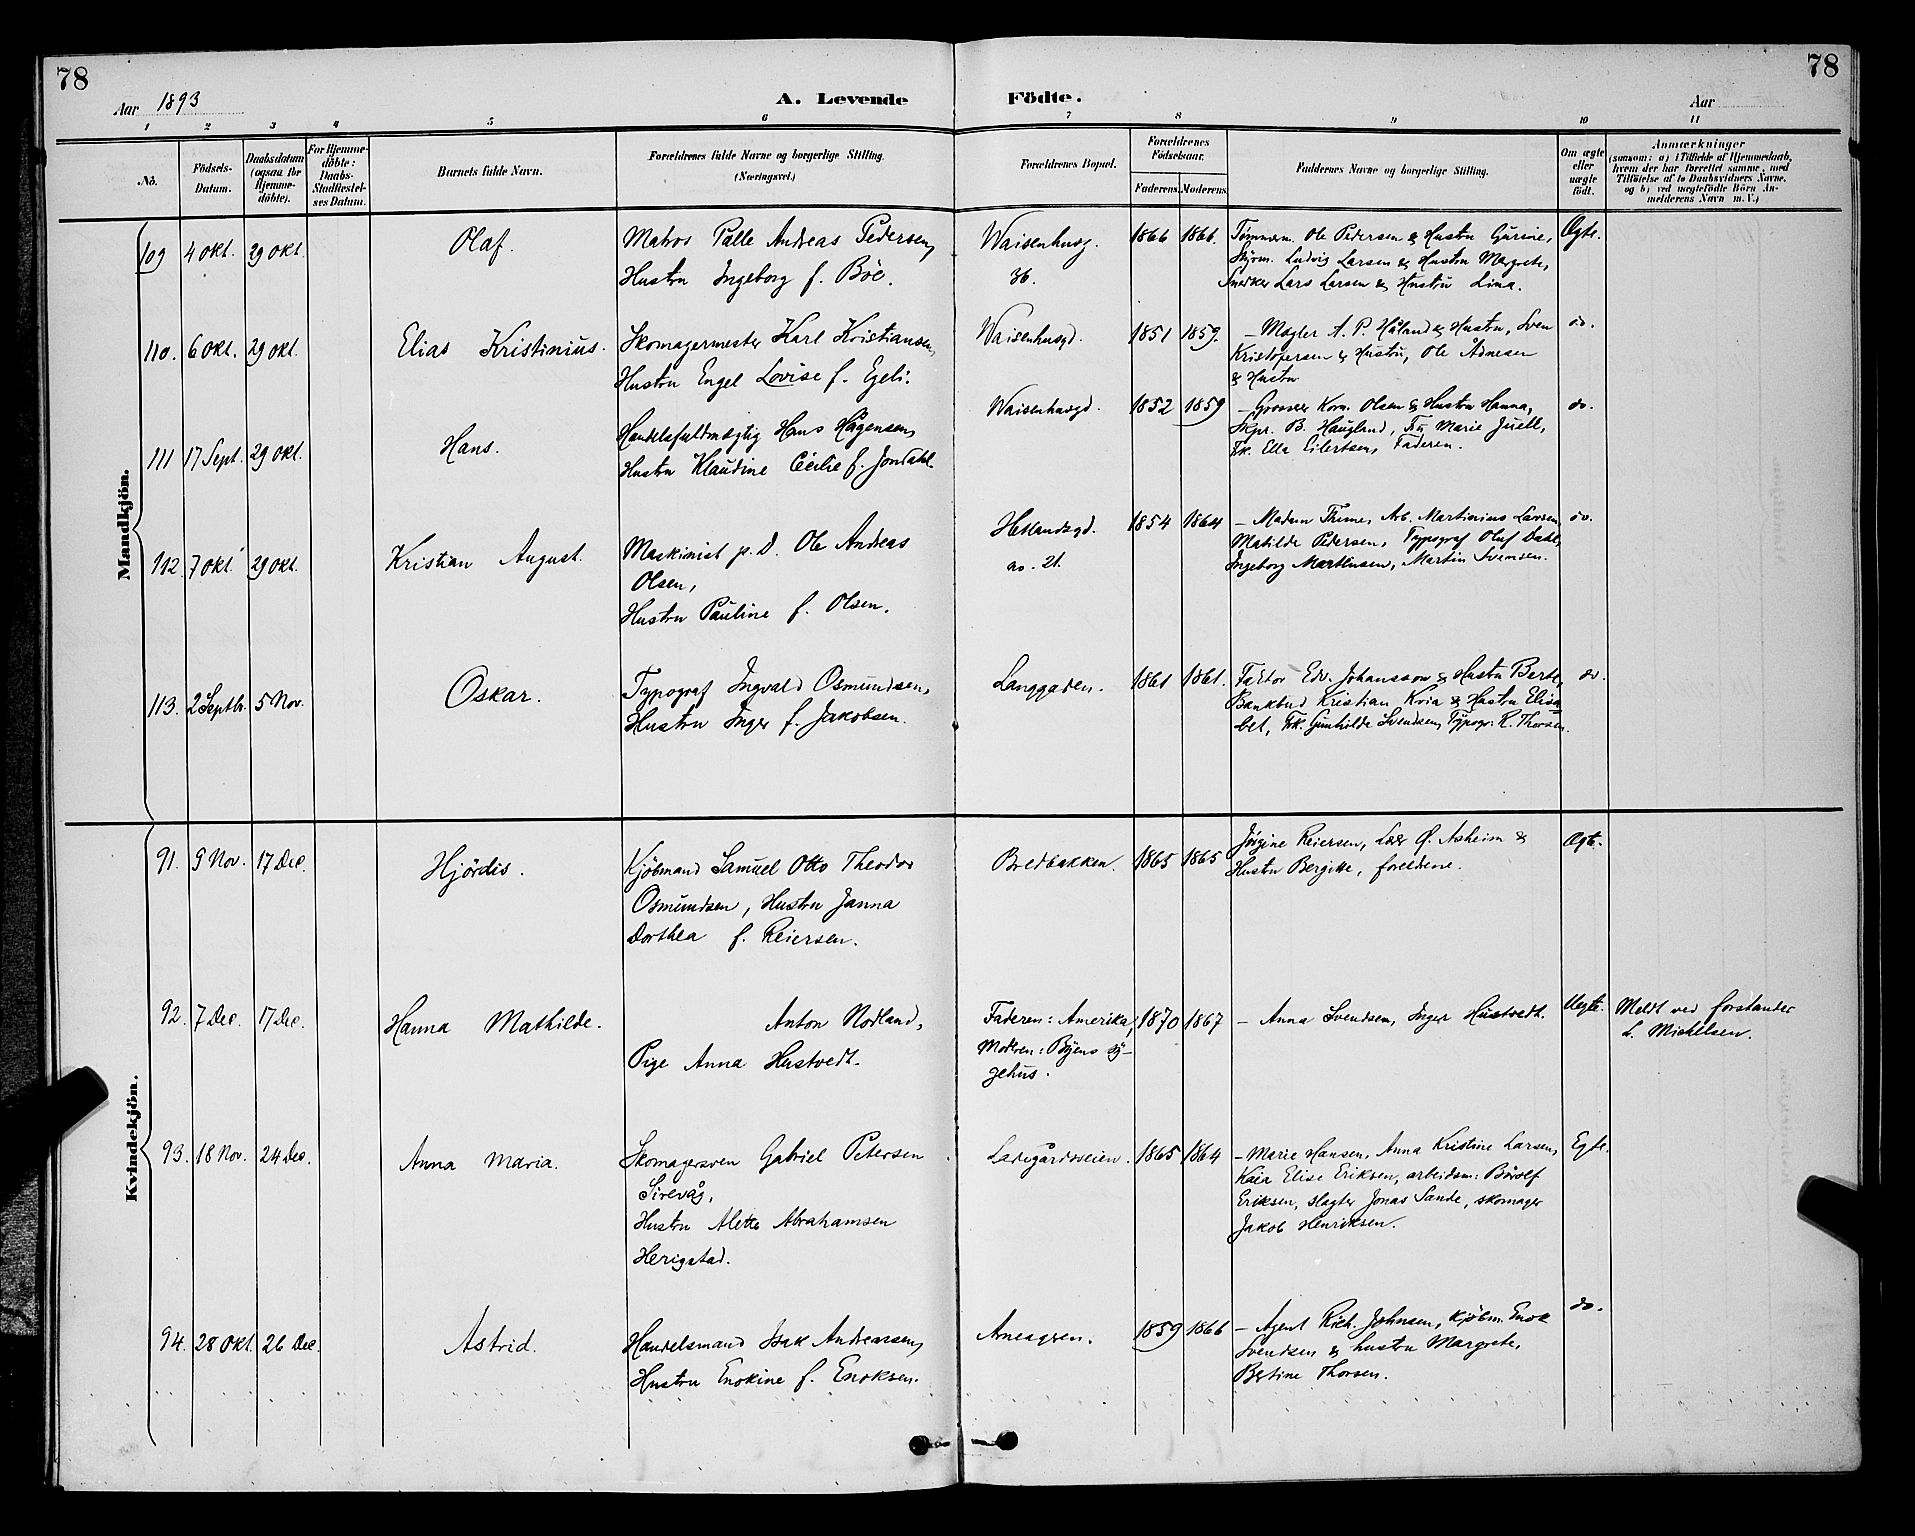 78
78
Aar 1893
A. Levende
Födte.
Aar
1 2 3 4 5 6 7 8 9 10 11
No.
Födsels-
Datum.
Daabsdatum
(ogsaa for
Hjemme-
döbte).
For Hjemme-
döbte:
Daabs-
Stadfæstel-
ses Datum.
Barnets fulde Navn.
Forældrenes fulde Navne og borgerlige Stilling.
(Næringsvei.)
Forældrenes Bopæl.
Forældrenes
Födselsaar.
Faderens.
Moderens.
Faddernes Navne og borgerlige Stilling.
Om ægte
eller
uægte
födt.
Anmærkninger
(saasom: a) i Tilfælde af Hjemmedaab,
hvem der har forrettet samme, med
Tilföielse af to Daabsvidners Navne,
og b) ved uægtefödte Börn An-
melderens Navn m. V.)
Mandkjön.
109 4 Okt. 29 Okt.
Olaf.
Matros Palle Andreas Pedersen,
Hustru Ingeborg f. Böe.
Waisenhusg.
36.
1866 1861.
Tømmerm. Ole Pedersen & Hustru Gurine,
Ludvig Larsen & Hustru Margrete,
Snedker Lars Larsen & Hustru Lina.
Egte.
110. 6 Okt. 29 Okt.
Elias Kristinius.
Skomagermester Karl Kristiansen,
Hustru Engel Lovise f. Egeli.
Waisenhusgd.
1851 1859.
– Mægler A. P. Håland & Hustru, Sven
Kristofersen & Hustru, Ole Ådnesen
& Hustru
do.
111 17 Sept. 29 Okt.
Hans.
Handelsfuldmægtig Hans Hågensen,
Hustru Klaudine Cecilie f. Jondahl.
Waisenhusgd.
1852 1859
– Grosser Korn. Olsen & Hustru Hanna,
Skpr. B. Haugland, Fru Marie Juell,
Frk. Ella Eilertsen, Faderen.
do.
112. 7 Okt. 29 Okt.
Kristian August.
Maskinist p. D. Ole Andreas
Olsen,
Hustru Pauline f. Olsen.
Hetlandsgd.
no. 21.
1854 1864
– Madam Thime, Arb. Martinius Larsen,
Matilde Pedersen, Typograf Oluf Dahl,
Ingeborg Marthisen, Martin Svensen.
do.
113. 2 Septbr. 5 Nov.
Oskar.
Typograf Ingvald Osmundsen,
Hustru Inger f. Jakobsen.
Langgaden.
1861 1861.
Faktor Edv. Johansson & Hustru Berte,
Bankbud Kristian Kvia & Hustru Elisa-
bet, Frk. Gunhilde Svendsen, Typogr. R. Thorsen.
do.
Kvindekjön.
91. 9 Nov. 17 Dec.
Hjördis.
Kjöbmand Samuel Otto Theodor
Osmundsen, Hustru Janna
Dorthea f. Reiersen.
Bredbakken.
1865 1865
Jørgine Reiersen, Lærer Ø. Asheim &
Hustru Bergitte, foreldene.
Egte.
92. 7 Dec. 17 Dec.
Hanna Mathilde.
Anton Nodland,
Pige Anna Hustvedt.
Faderen: Amerika,
Moderen: Byens sy-
gehus.
1870 1867
– Anna Svendsen, Inger Hustvedt.
Uegte.
Meldt ved forstander
L. Michelsen.
93. 18 Nov. 24 Dec.
Anna Maria.
Skomagersven Gabriel Petersen
Sirevåg,
Hustru Alette Abrahamsen
Herigstad.
Ladegårdsveien.
1865 1864
– Marie Hansen, Anna Kristine Larsen,
Kaia Elise Eriksen, arbeidsm: Börolf
Eriksen, slagter Jonas Sande, skomager
Jakob Henriksen.
Egte.
94. 28 Okt. 26 Dec.
Astrid.
Handelsmand Isak Andreassen,
Hustru Enokine f. Enoksen.
Arneageren.
1859 1866
– Agent Rich. Johnsen, kjöbm. Enok
Svendsen & hustru Margrete,
Bertine Thorsen.
do.